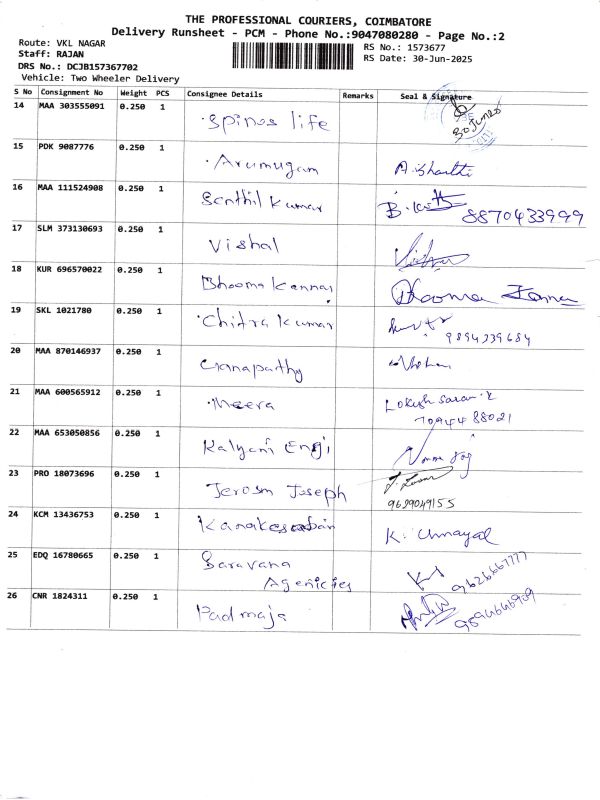 THE PROFESSIONAL COURIERS, COIMBATORE
Delivery Runsheet - PCM - Phone No.:9047080280 - Page No.:2
Route: VKL NAGAR
RS No.: 1573677
Staff: RAJAN
RS Date: 30-Jun-2025
DRS No.: DCJB157367702
Vehicle: Two Wheeler Delivery
S No Consignment No Weight PCS Consignee Details Remarks Seal & Signature
14 MAA 303555091 0.250 1 Spinos life
15 PDK 9087776 0.250 1 Arumugam A. Bharthi
16 MAA 111524908 0.250 1 Senthil Kumar 8870433999
17 SLM 373130693 0.250 1 Vishal
18 KUR 696570022 0.250 1 Bhooma Kannan
19 SKL 1021780 0.250 1 Chitra Kumar
9894339684
20 MAA 870146937 0.250 1 Ganapathy
21 MAA 600565912 0.250 1 Meera Lokesh Saran K
7094488021
22 MAA 653050856 0.250 1 Kalyani Engi
23 PRO 18073696 0.250 1 Jerosm Joseph
9629049155
24 KCM 13436753 0.250 1 Kanakesaban K. Umayal
25 EDQ 16780665 0.250 1 Saravana
Agenicies 9626667777
26 CNR 1824311 0.250 1 Padmaja 9894646909